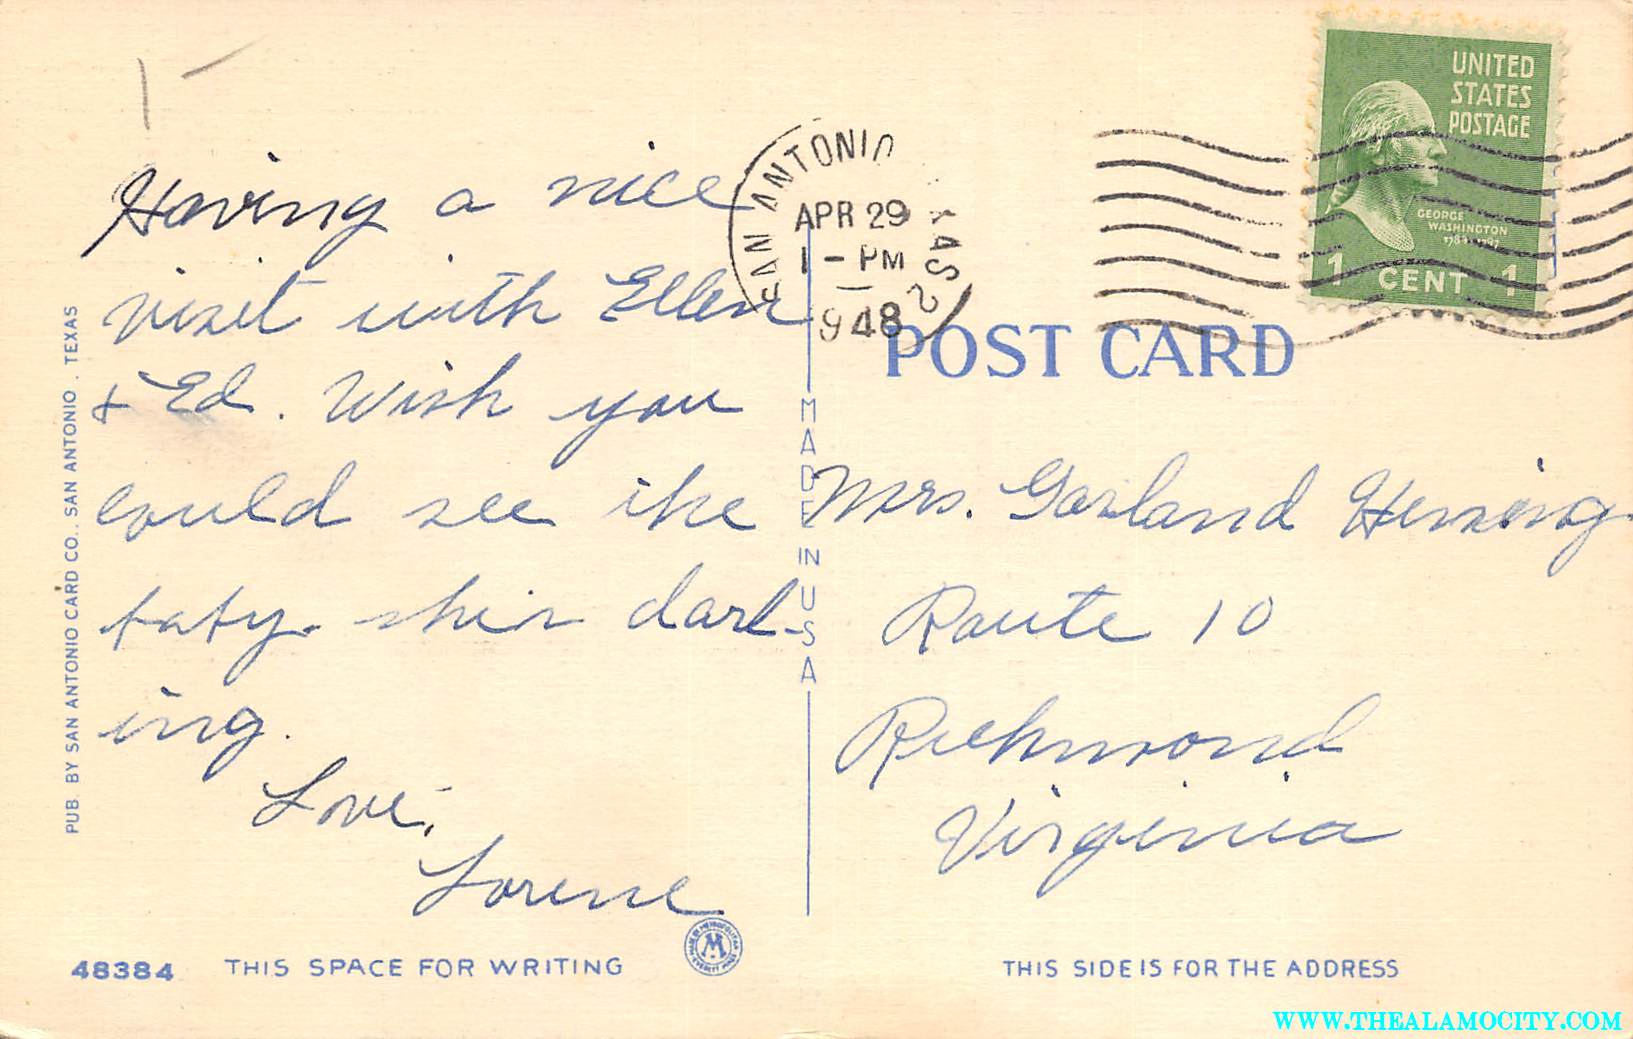 Having a nice
visit with Ellen
+ Ed. Wish you
could see the
baby. She's darl-
ing.
Love,
Lorene
PUB. BY SAN ANTONIO CARD CO., SAN ANTONIO, TEXAS
48384
THIS SPACE FOR WRITING
MADE BY METROPOLITAN
M
EVERETT MASS
MADE IN USA
SAN ANTONIO
APR 29
1 - PM
1948
UNITED
STATES
POSTAGE
GEORGE
WASHINGTON
1789-1797
1 CENT 1
POST CARD
Mrs. Garland
Route 10
Richmond
Virginia
THIS SIDE IS FOR THE ADDRESS
WWW.THEALAMOCITY.COM